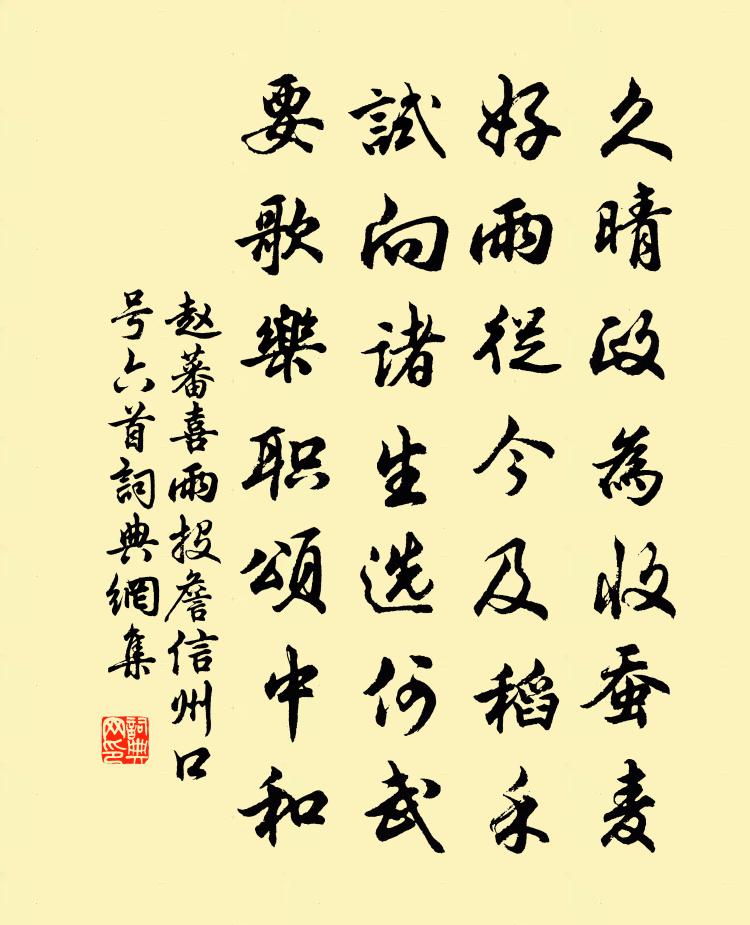 久晴政為收蚕麦
好雨從今及稻禾
試向諸生选何武
要歌樂职頌中和
赵蕃喜雨投詹信州口
号六首詞典網集
詞典
网印